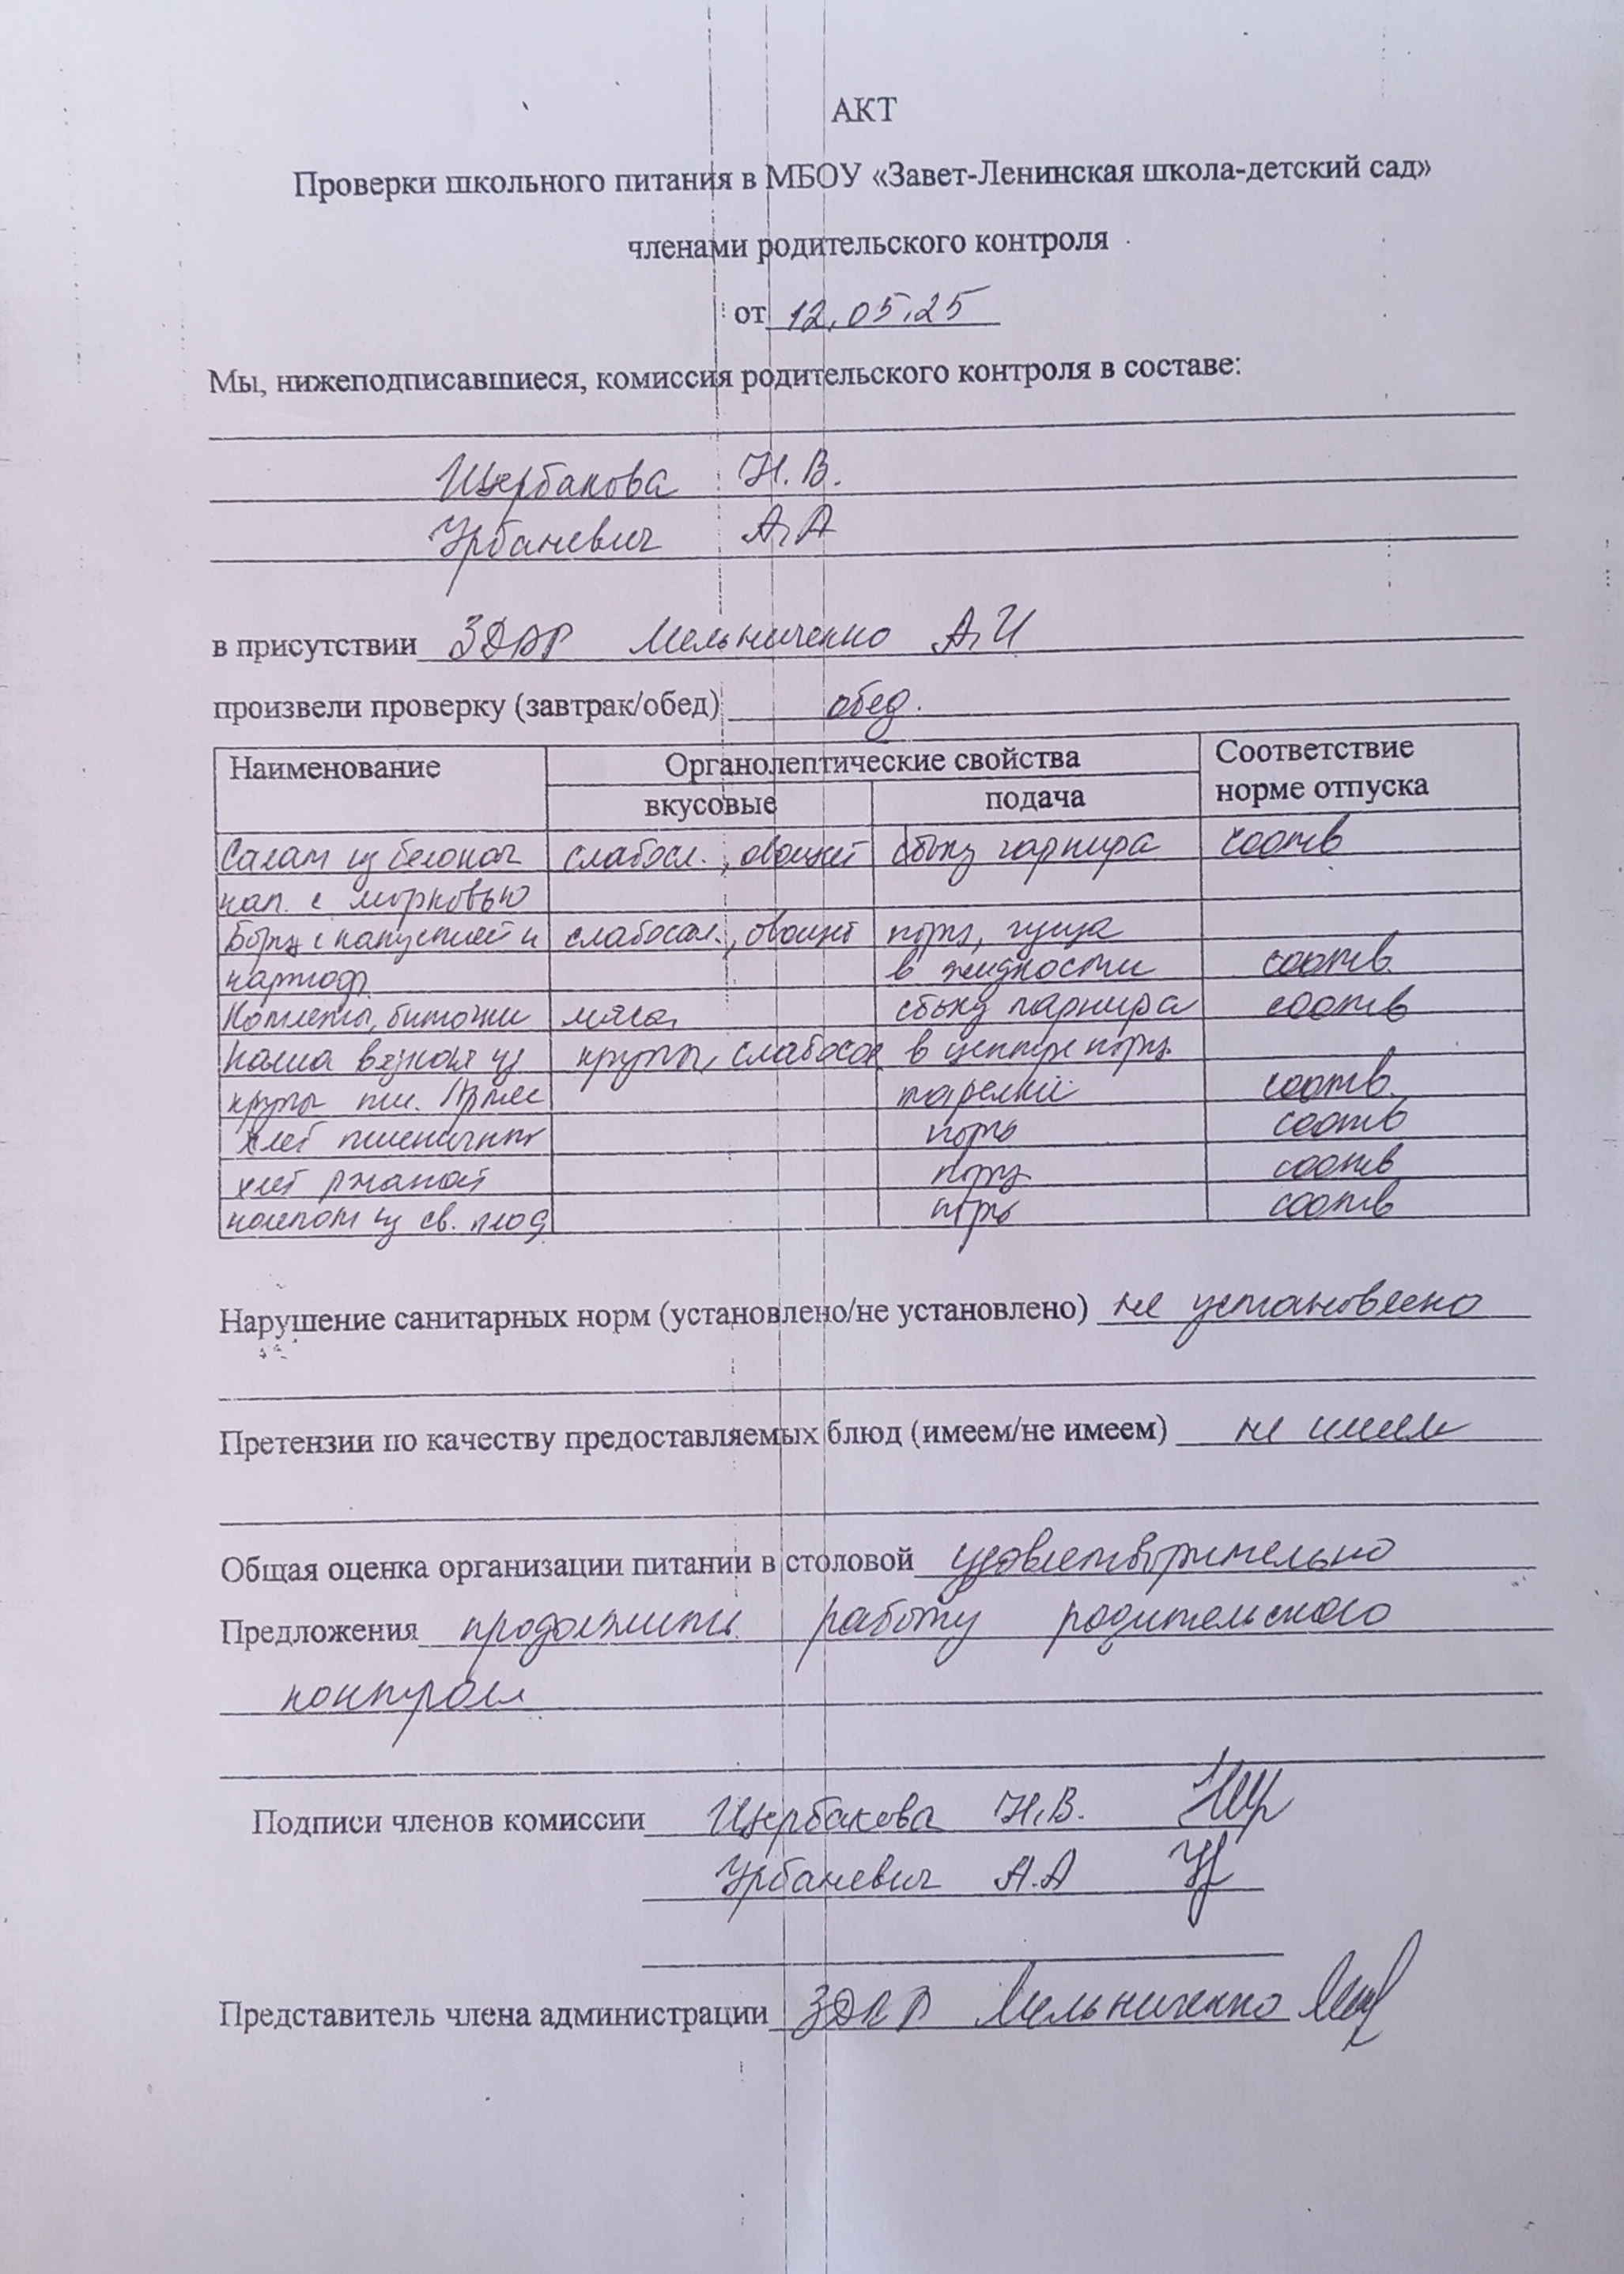 АКТ
Проверки школьного питания в МБОУ «Завет-Ленинская школа-детский сад»
членами родительского контроля
от 12.05.25
Мы, нижеподписавшиеся, комиссия родительского контроля в составе:
Щербакова Н.В.
Урбаневич А.А
в присутствии Мельниченко А.И
произвели проверку (завтрак/обед) обед.
Наименование Органолептические свойства Соответствие
вкусовые подача норме отпуска
Салат из белокач слабосл., овощей сбоку гарнира соотв
кап. с морковью
Борщ с капустой и слабосол., овощей порц, гуща
картоф в жидкости соотв.
Котлеты, биточки мяса, сбоку гарнира соотв
Каша вязкая из крупы, слабосол в центре порц.
крупы пш. тарелки соотв.
хлеб пшеничный порц соотв
хлеб ржаной порц соотв
компот из св. плод порц соотв
Нарушение санитарных норм (установлено/не установлено) не установлено
Претензии по качеству предоставляемых блюд (имеем/не имеем) не имеем
Общая оценка организации питании в столовой удовлетворительно
Предложения продолжить работу родительского
контроля
Подписи членов комиссии Щербакова Н.В.
Урбаневич А.А
Представитель члена администрации Мельниченко